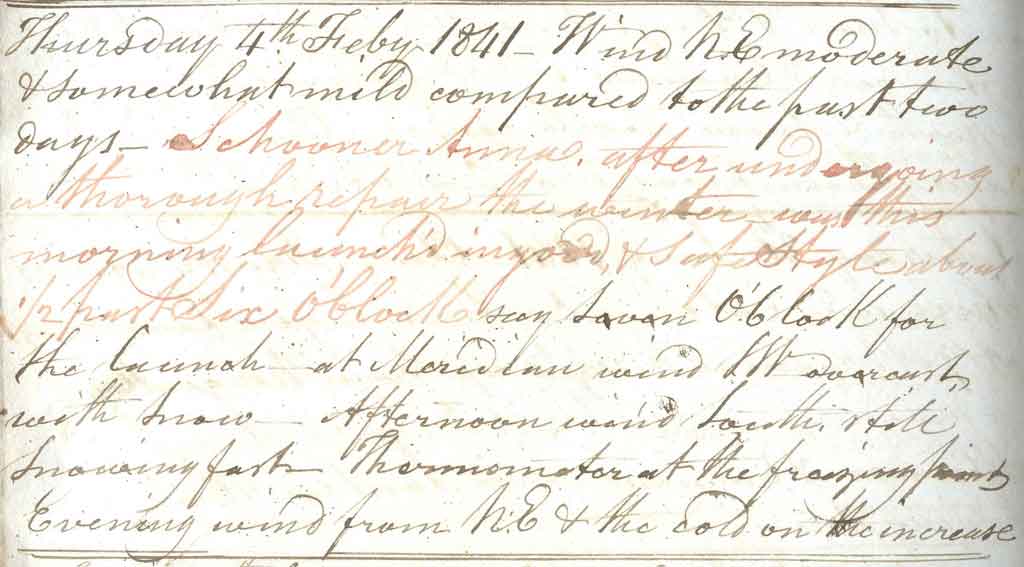 Thursday 4th Feby 1841 - Wind N.E moderate
& somewhat mild compared to the past two
days - Schooner Anna, after undergoing
a thorough repair the winter was this
morning launch'd in good, & safe Style about
1/2 past Six O'Clock say Seven O'Clock for
the launch - at Meridian wind SW overcast
with Snow - Afternoon wind South, still
Snowing fast Thermometer at the freezing point
Evening wind from N.E & the cold on the increase